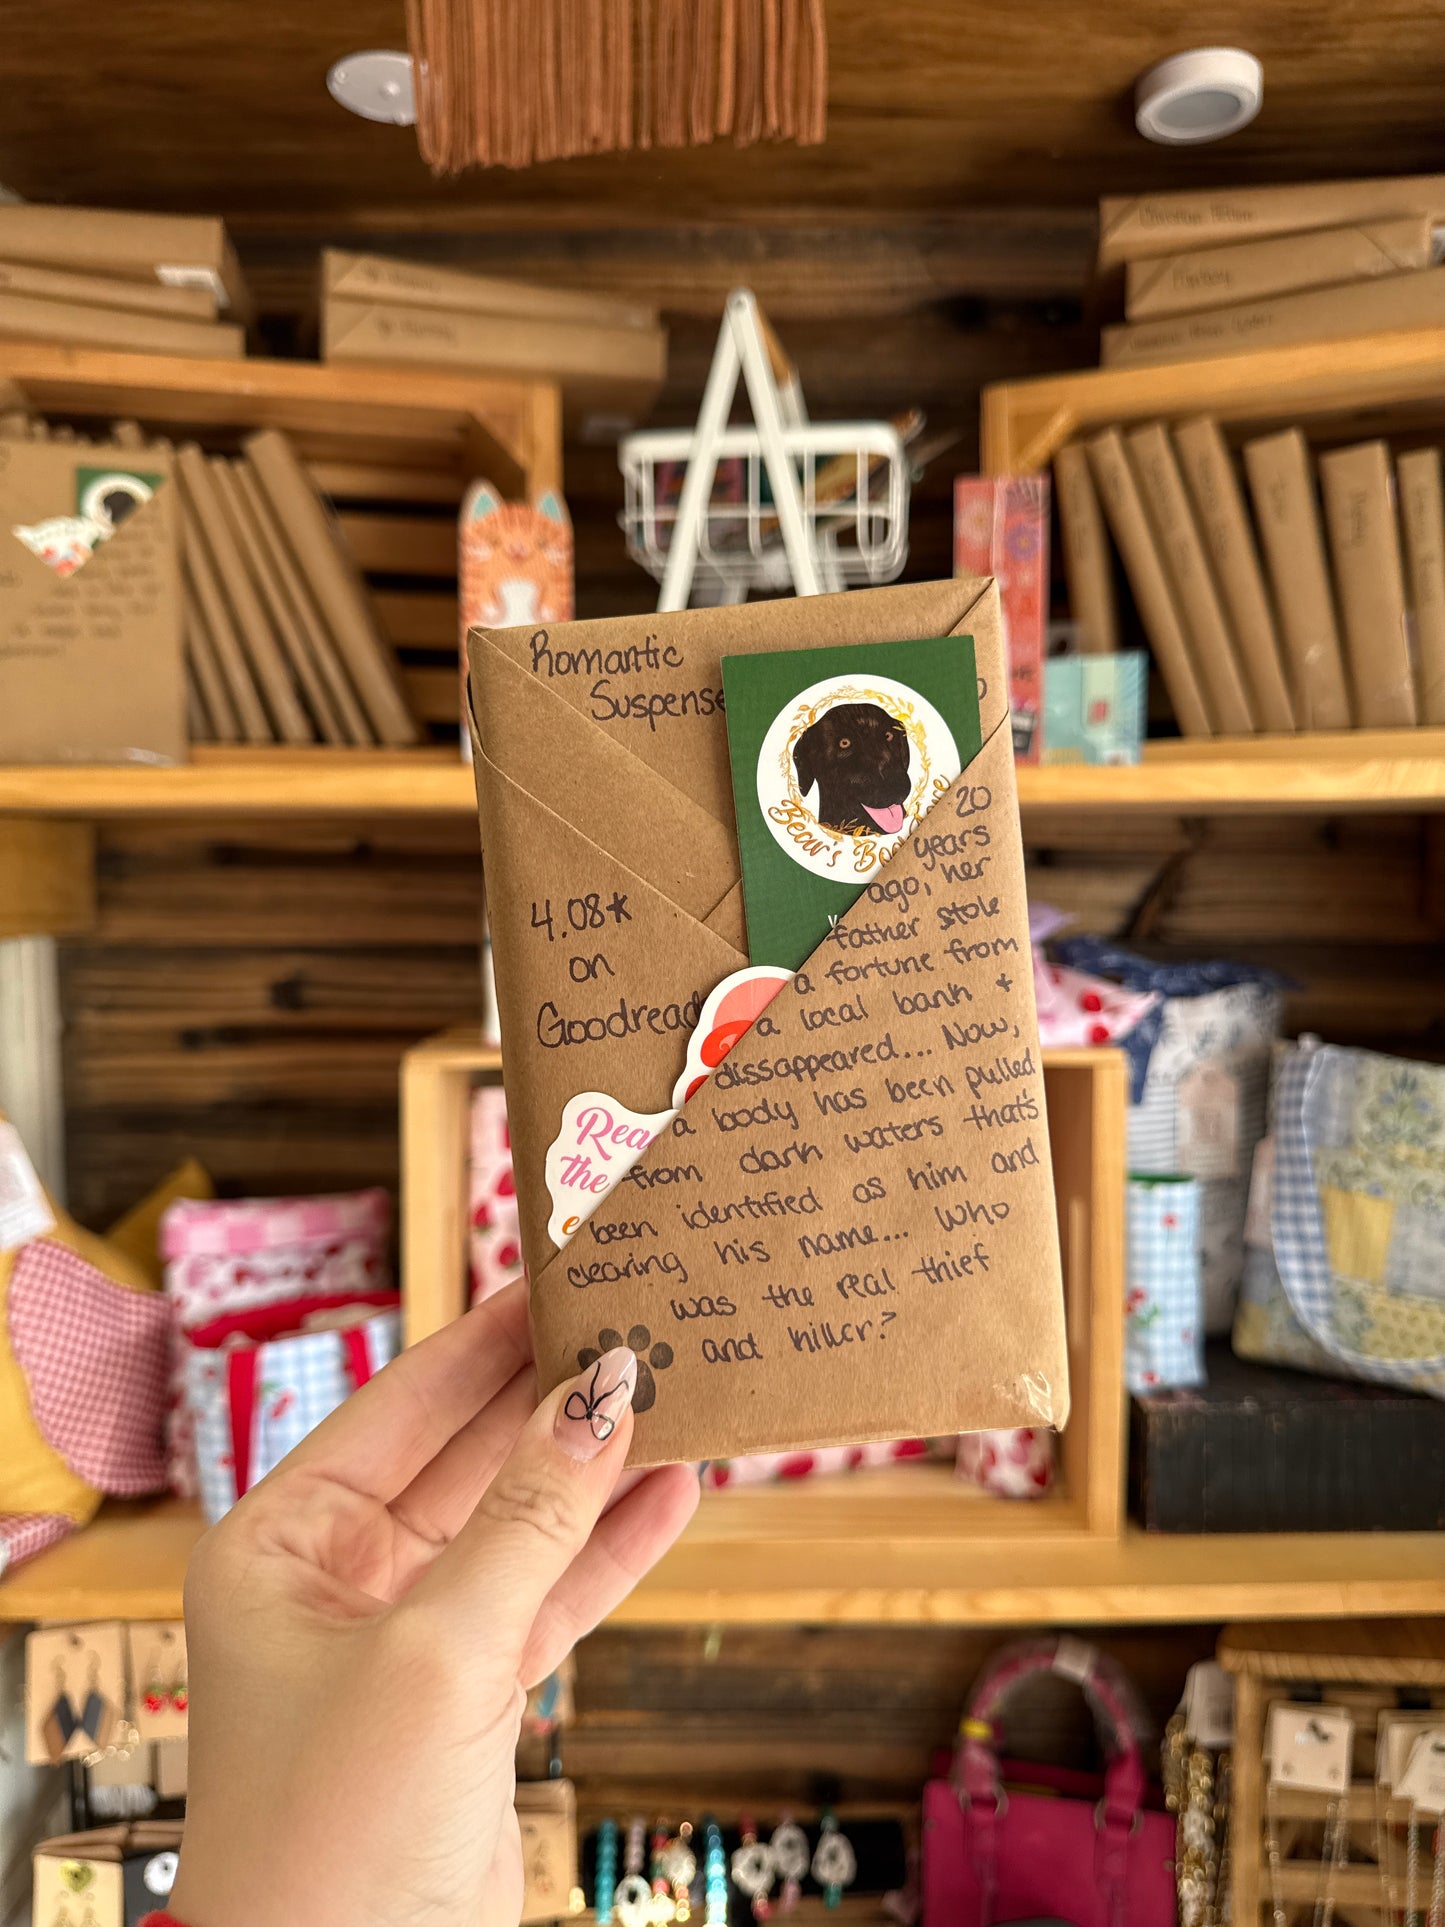 Romantic
Suspense
Bear's
4.08★
on
Goodread
Rea
the
e
20
years
ago, her
father stole
a fortune from
a local bank +
dissappeared... Now,
a body has been pulled
from dark waters that's
been identified as him and
clearing his name... Who
was the real thief
and killer?
Fantasy